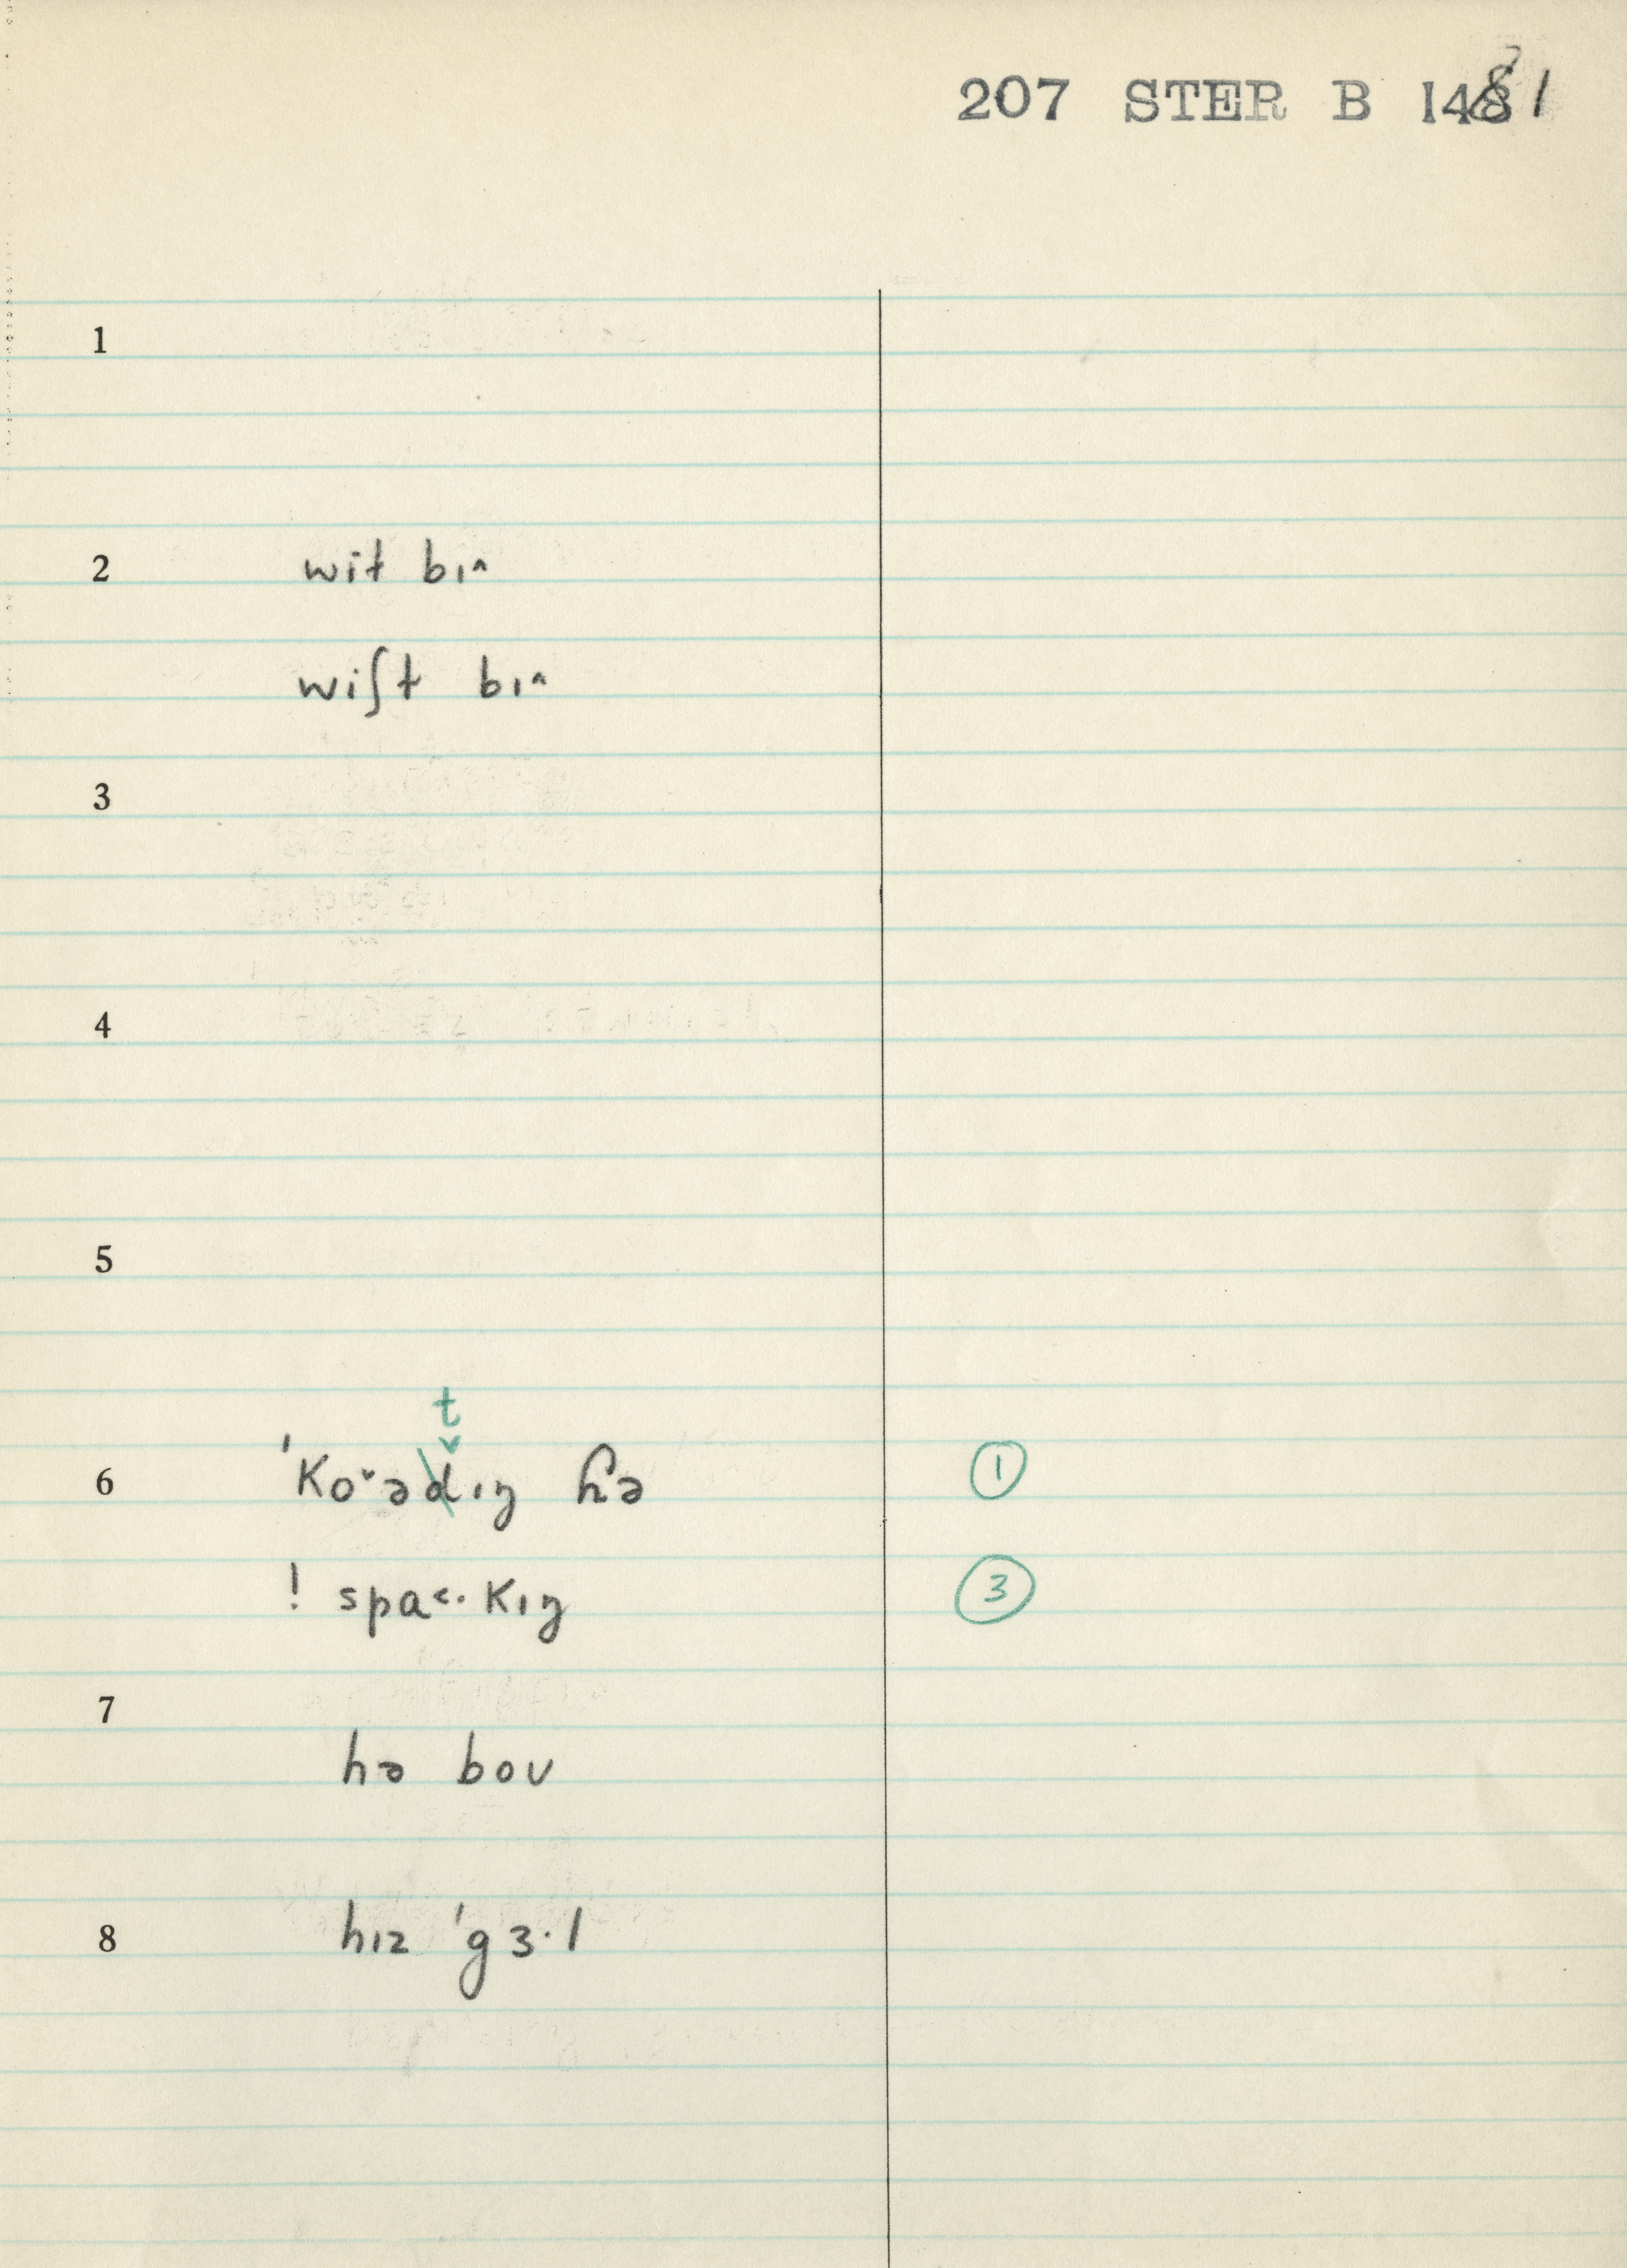 207 STER B 1481
1
2 wit bɪ^
wiʃt bɪ^
3
4
5
t
6 ˈkoˇədɪŋ ɦə ①
! spa<·kɪŋ ③
7
hə boʊ
8 hɪz ˈgɜ·l